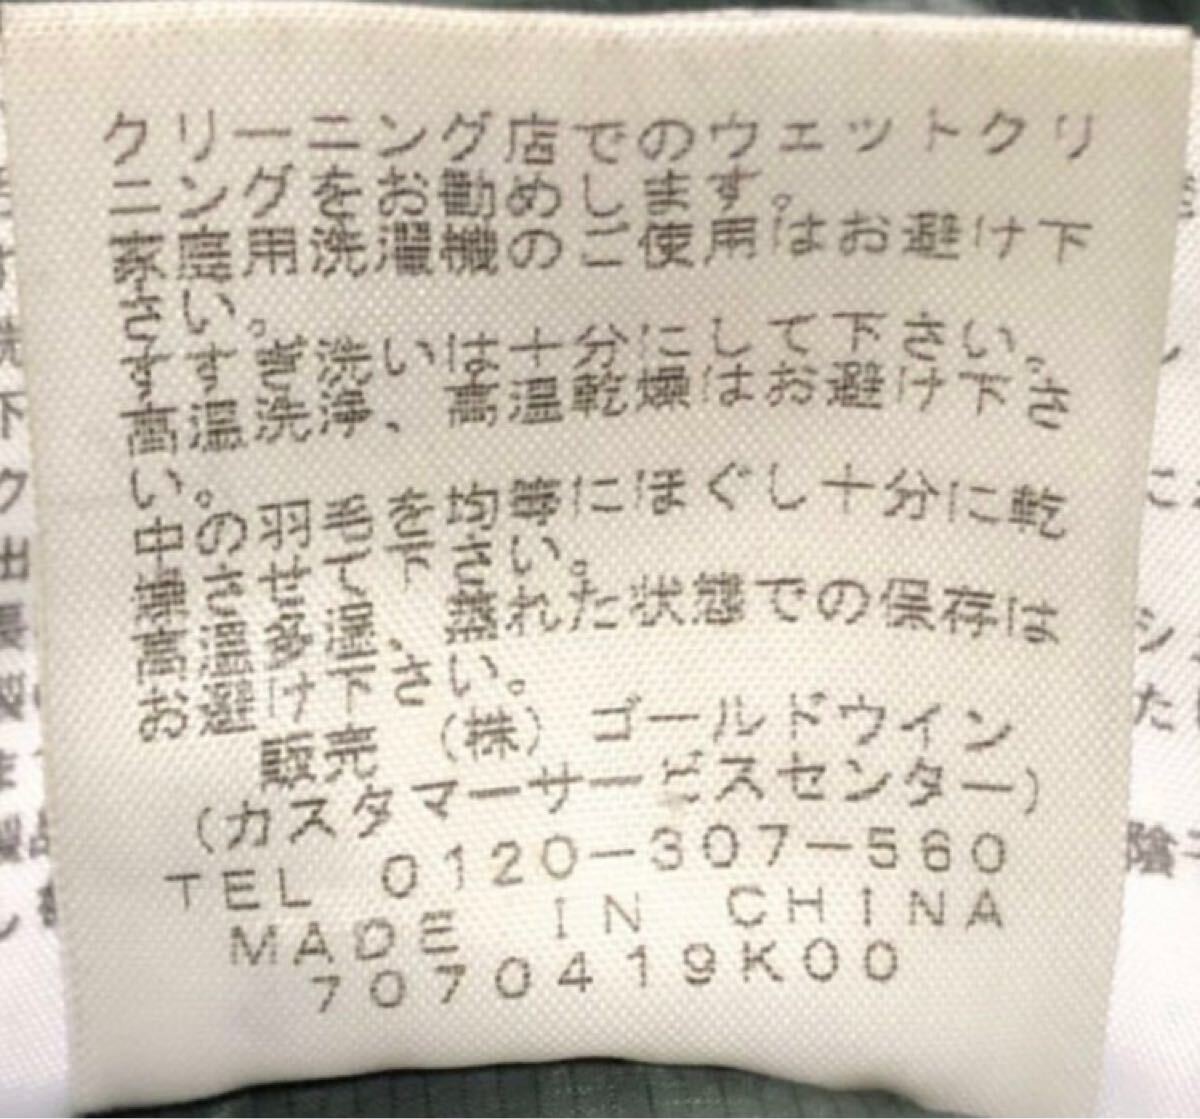 クリーニング店でのウェットクリ
ニングをお勧めします。
家庭用洗濯機のご使用はお避け下
さい。
すすぎ洗いは十分にして下さい。
高温洗浄、高温乾燥はお避け下さ
い。
中の羽毛を均等にほぐし十分に乾
燥させて下さい。
高温多湿、蒸れた状態での保存は
お避け下さい。
販売 (株) ゴールドウイン
(カスタマーサービスセンター)
TEL 0120-307-560
MADE IN CHINA
7070419K00